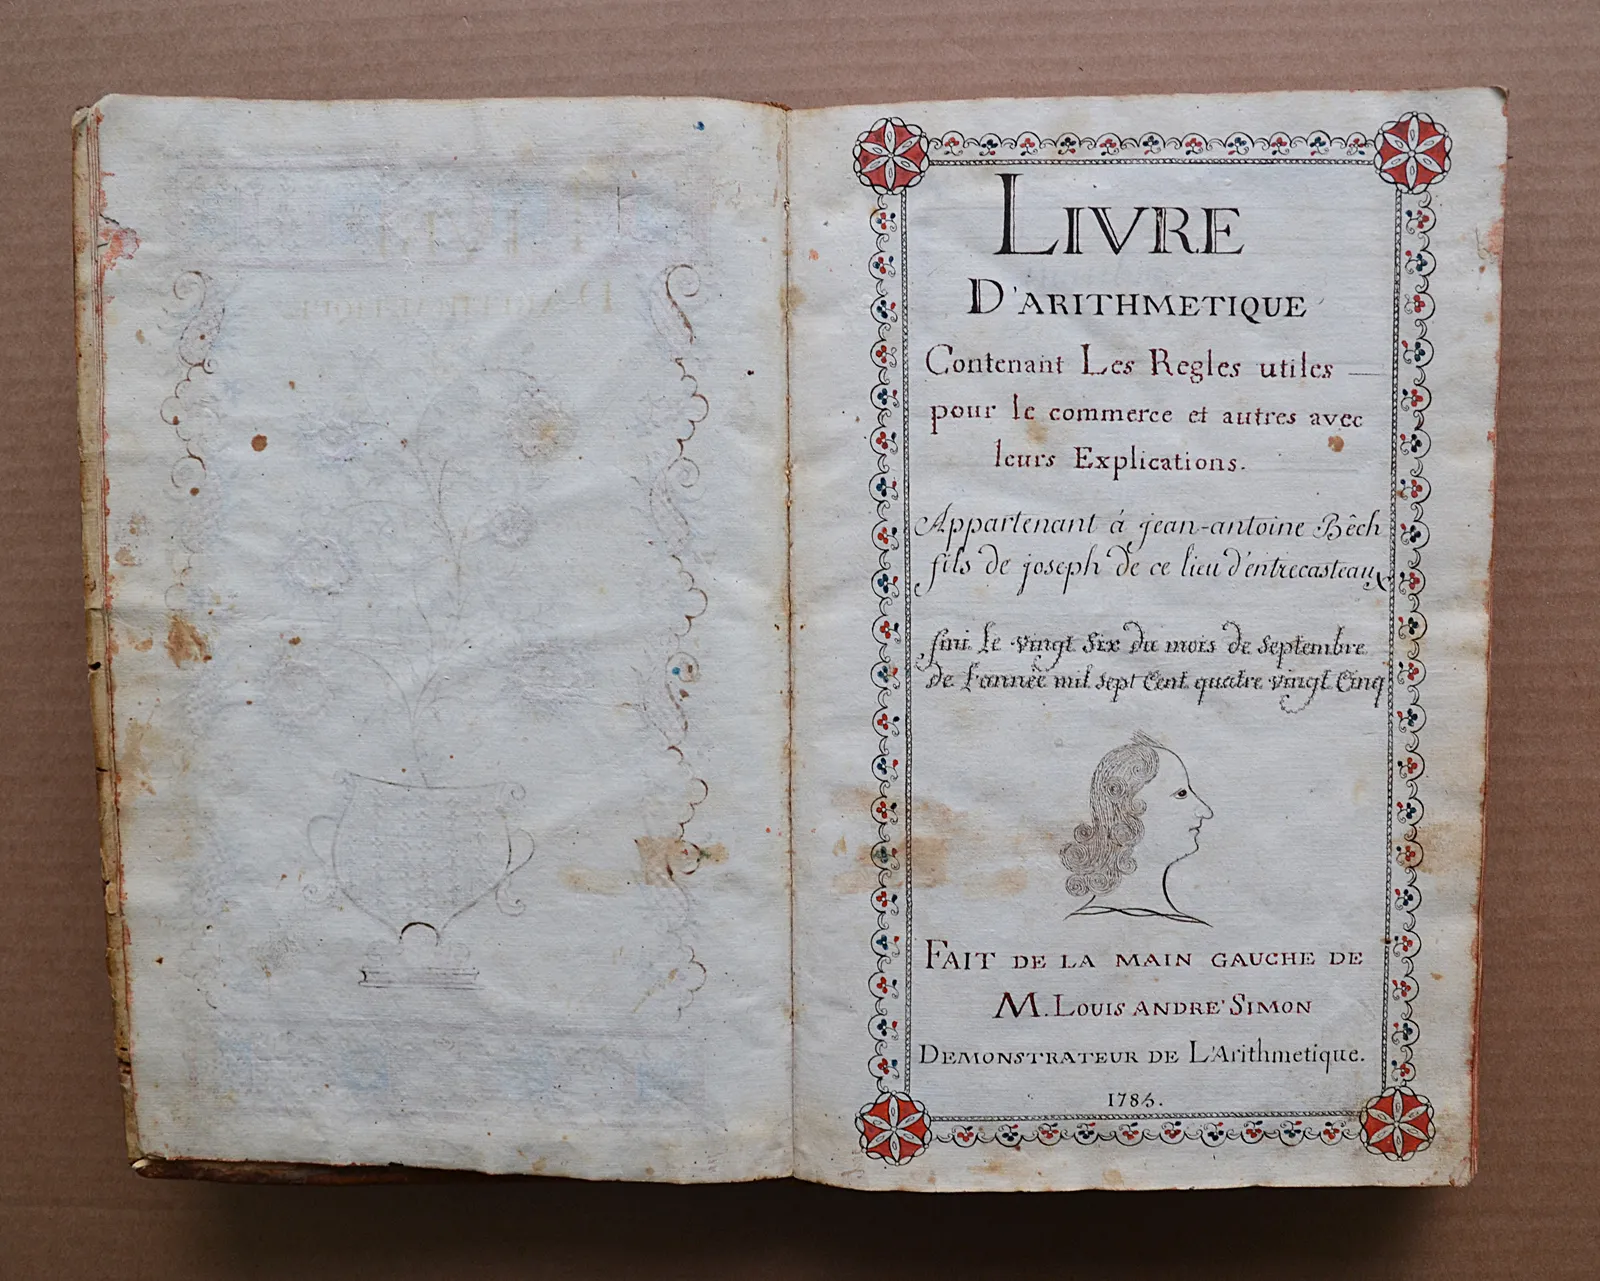 LIVRE
D'ARITHMETIQUE
Contenant Les Regles utiles —
pour le commerce et autres avec
leurs Explications.
Appartenant á jean-antoine Bêch
fils de joseph de ce lieu d'entrecasteaux
fini le vingt six du mois de septembre
de l'année mil sept cent quatre vingt Cinq
FAIT DE LA MAIN GAUCHE DE
M. LOUIS ANDRE' SIMON
DEMONSTRATEUR DE L'Arithmetique.